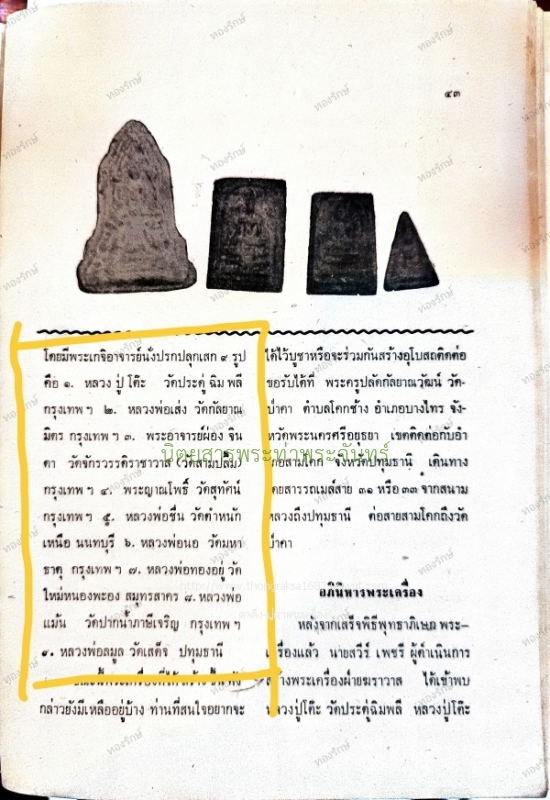 ๔๓
โดยมีพระเกจิอาจารย์นั่งปรกปลุกเสก ๙ รูป
คือ ๑. หลวงปู่โต๊ะ วัดประดู่ฉิมพลี
กรุงเทพฯ ๒. หลวงพ่อเส่ง วัดกัลยาณ
มิตร กรุงเทพฯ ๓. พระอาจารย์ผ่อง จิน
ดา วัดจักรวรรดิราชาวาส (วัดสามปลื้ม)
กรุงเทพฯ ๔. พระญาณโพธิ์ วัดสุทัศน์
กรุงเทพฯ ๕. หลวงพ่อชื่น วัดตำหนัก
เหนือ นนทบุรี ๖. หลวงพ่อนอ วัดมหา
ธาตุ กรุงเทพฯ ๗. หลวงพ่อทองอยู่ วัด
ใหม่หนองพะอง สมุทรสาคร ๘. หลวงพ่อ
แม้น วัดปากน้ำภาษีเจริญ กรุงเทพฯ
๙. หลวงพ่อลมูล วัดเสด็จ ปทุมธานี
กล่าวยังมีเหลืออยู่บ้าง ท่านที่สนใจอยากจะ
ได้ไว้บูชาหรือจะร่วมกันสร้างอุโบสถติดต่อ
ขอรับได้ที่ พระครูปลัดกัลยาณวัฒน์ วัด-
ป่าคา ตำบลโคกช้าง อำเภอบางไทร จัง-
หวัดพระนครศรีอยุธยา เขตติดต่อกับอำ
เภอสามโคก จังหวัดปทุมธานี เดินทาง
โดยสารรถเมล์สาย ๓๑ หรือ ๓๓ จากสนาม
หลวงถึงปทุมธานี ต่อสายสามโคกถึงวัด
ป่าคา
อภินิหารพระเครื่อง
หลังจากเสร็จพิธีพุทธาภิเษก พระ-
เครื่องแล้ว นายสวีร์ เพชรี ผู้ดำเนินการ
สร้างพระเครื่องฝ่ายฆราวาส ได้เข้าพบ
หลวงปู่โต๊ะ วัดประดู่ฉิมพลี หลวงปู่โต๊ะ
นิตยสารพระท่าพระจันทร์
ทองรักษ์